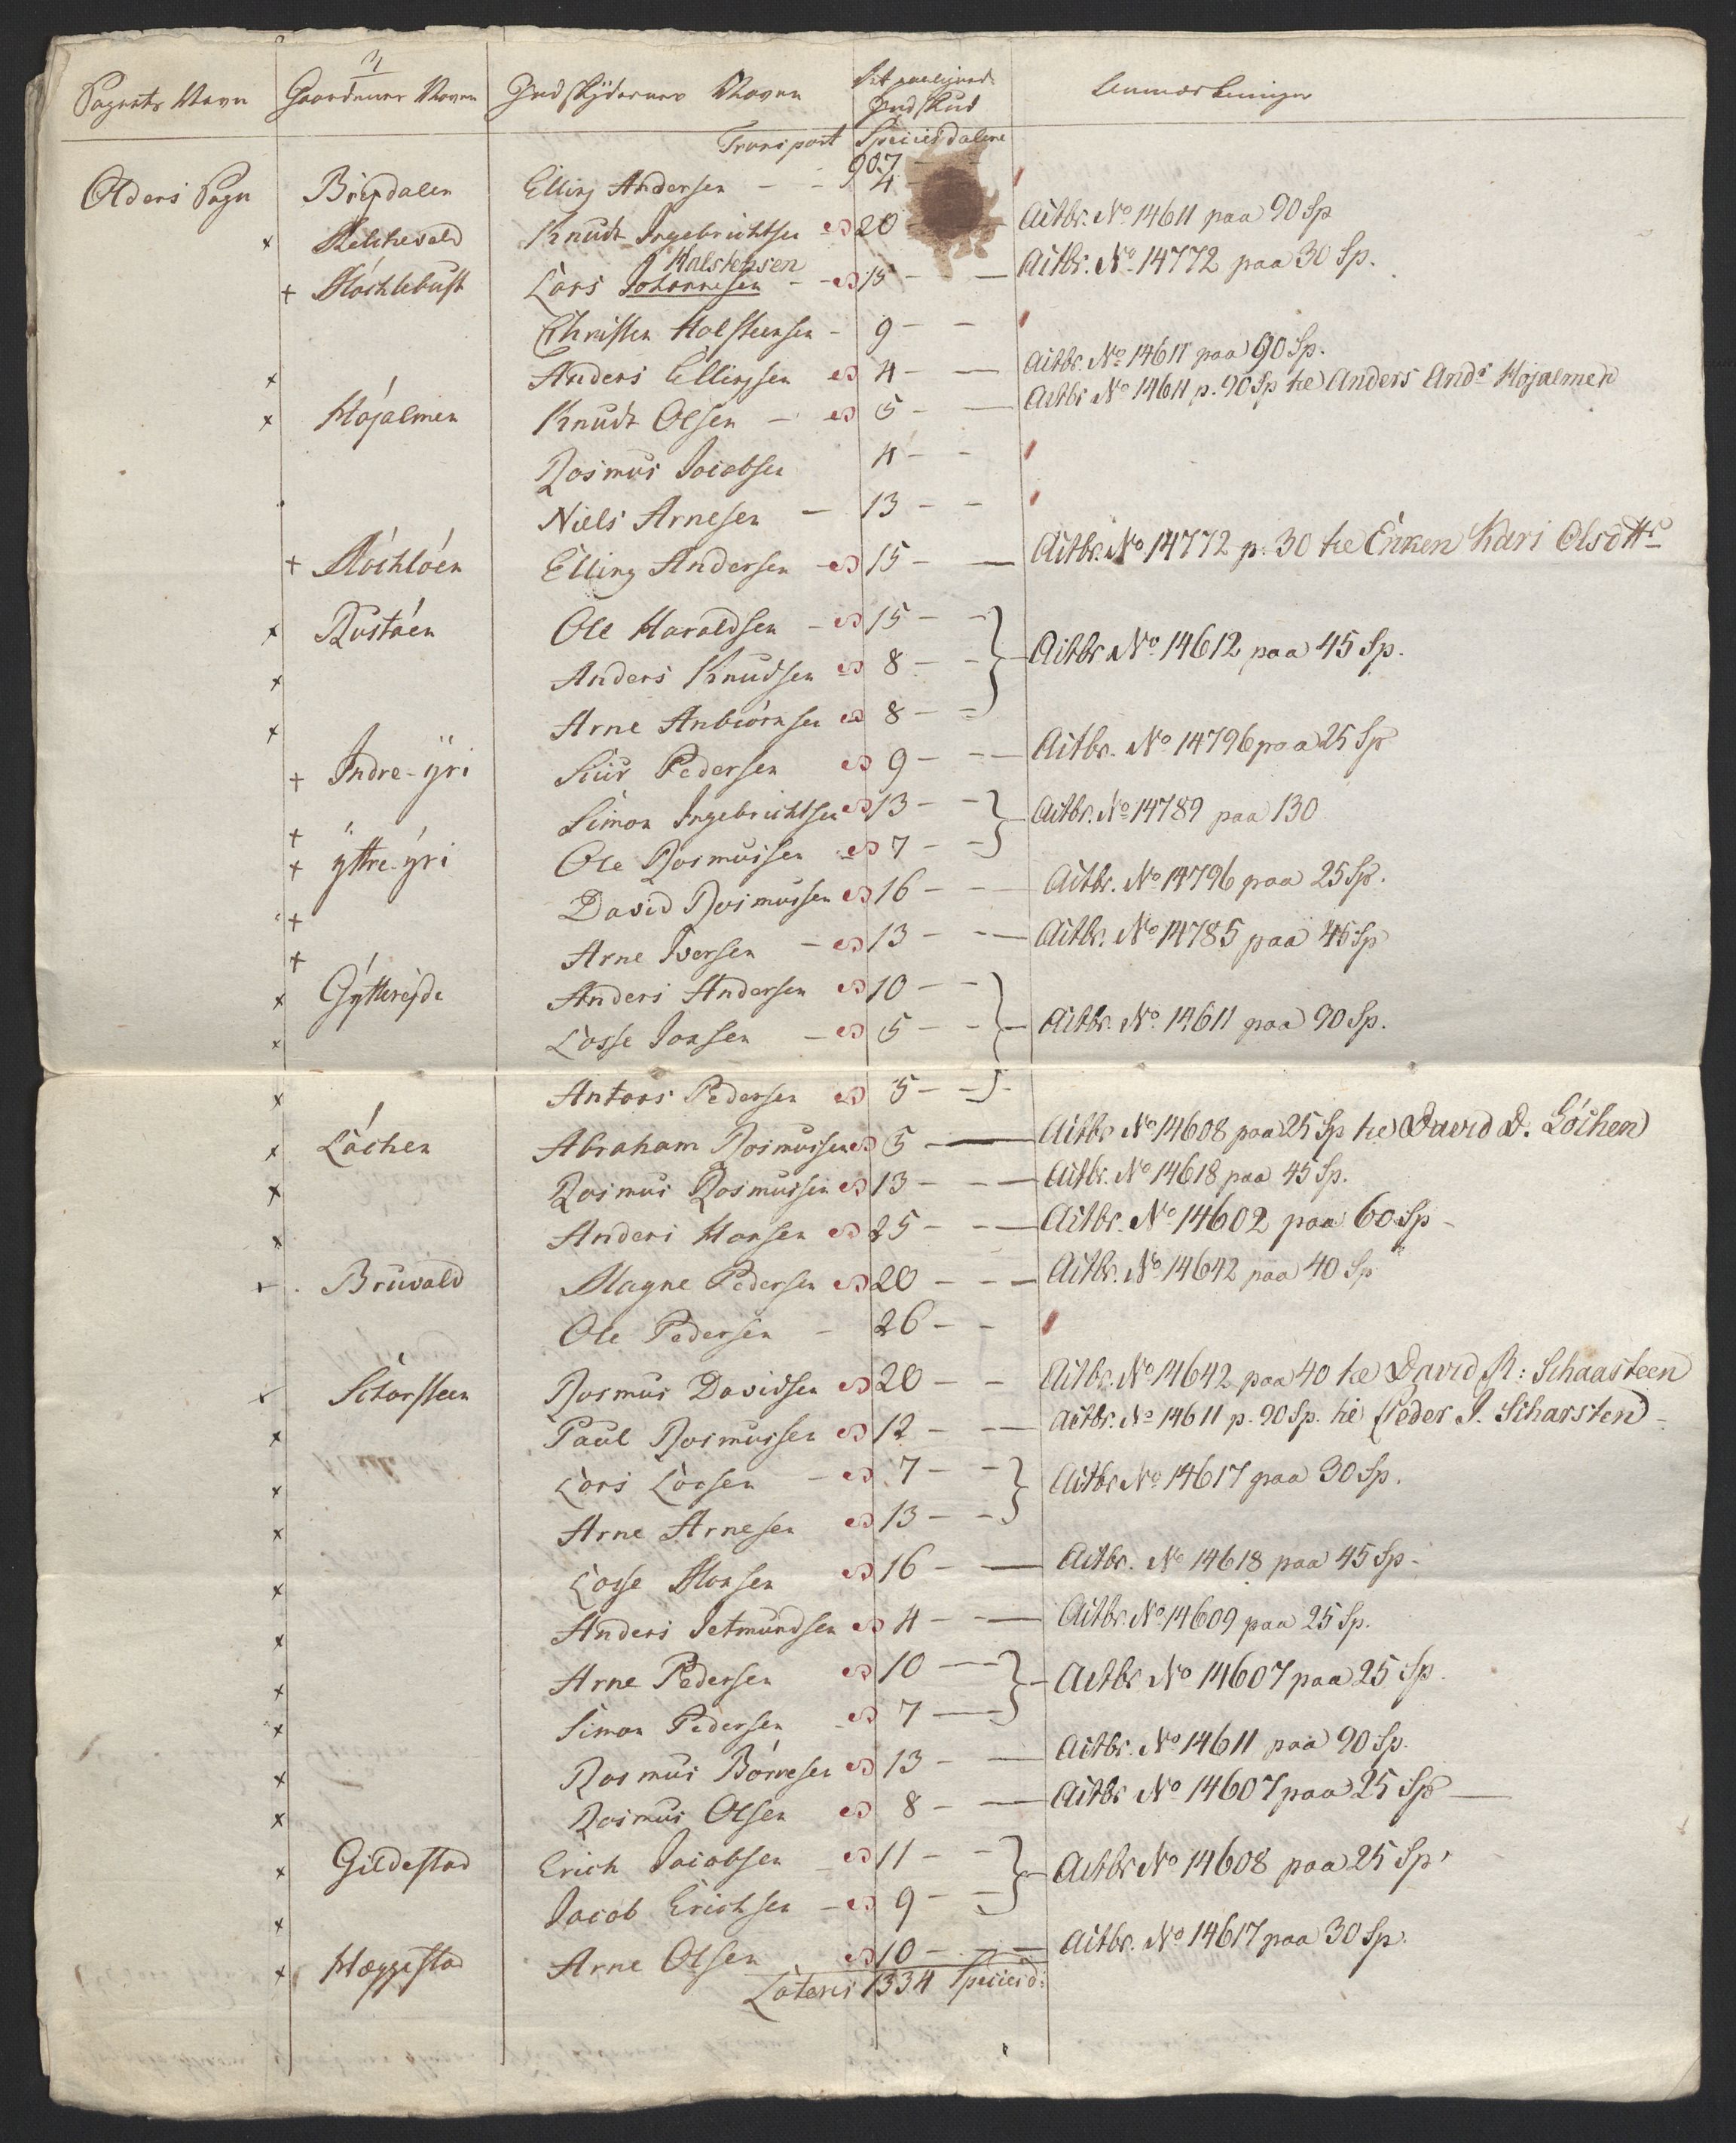 Sognets Navn Gaardenes Navn Indskydernes Navn Det paalignede Indskud Anmærkninger
Transport Speciesdalere
907
Olders Sogn Brejdalen Elling Andersen - - 4
Melchevold Knudt Ingebrichtsen 20 - Actbr. No 14611 paa 90 Sp
Halstensen
Mochlebust Lars Johannesen - - 15 - - Actbr. No 14772 paa 30 Sp.
Christen Halsteensen - 9 - -
Anders Ellingsen 4 - - Actbr. No 14611 paa 90 Sp.
Højalmen Knudt Olsen - 5 - - Actbr No 14611 p. 90 Sp til Anders Ands Højalmen
Rasmus Jacobsen 4 - -
Niels Arnesen - 13 - -
Mochlöen Elling Andersen - 15 - - Actbr. No 14772 p. 30 til Enken Kari Olsdttr
Rustöen Ole Haraldsen - 15 - -
Anders Knudsen 8 - - Actbr No 14612 paa 45 Sp.
Arne Anbiörnsen 8 - -
Indre-ÿri Siur Pedersen 9 - - Actbr. No 14796 paa 25 Sp
Simon Ingebrichtsen 13 - - Actbr. No 14789 paa 130
ÿttre-ÿri Ole Rasmussen 7 - -
David Rasmussen 16 - - Actbr. No 14796 paa 25 Sp.
Arne Iversen - 13 - - Actbr. No 14785 paa 45 Sp
Gÿttrejde Anders Andersen 10 - -
Lasse Jonsen - 5 - - Actbr. No 14611 paa 90 Sp.
Antoni Pedersen 5 - -
Löchen Abraham Rasmussen 5 - Actbr No 14608 paa 25 Sp til David D. Löchen
Rasmus Rasmussen 13 - - Actbr. No 14618 paa 45 Sp.
Anders Hansen 25 - - Actbr. No 14602 paa 60 Sp -
Bruvold Magne Pedersen 20 - - - Actbr. No 14642 paa 40 Sp
Ole Pedersen - 26 - -
Schorsteen Rasmus Davidsen 20 - - Actbr. No 14642 paa 40 til David R: Schaasteen
Paul Rasmussen 12 - - Actbr. No 14611 p. 90 Sp. til Peder J. Scharsten -
Lars Larsen - 7 - - Actbr No 14617 paa 30 Sp.
Arne Arnesen 13 - -
Lasse Monsen 16 - - Actbr. No 14618 paa 45 Sp -
Anders Jetmundsen 4 - - Actbr. No 14609 paa 25 Sp.
Arne Pedersen 10 - - Actbr No 14607 paa 25 Sp.
Simon Pedersen 7 - -
Rasmus Börresen 13 - - Actbr. No 14611 paa 90 Sp.
Rasmus Olsen 8 - - Actbr No 14607 paa 25 Sp
Gildestad Erich Jacobsen 11 - - Actbr No 14608 paa 25 Sp
Jacob Erichsen - 9 - -
Hæggestad Arne Olsen 10 - - Actbr. No 14617 paa 30 Sp.
Lateris 1334 Speciesd: